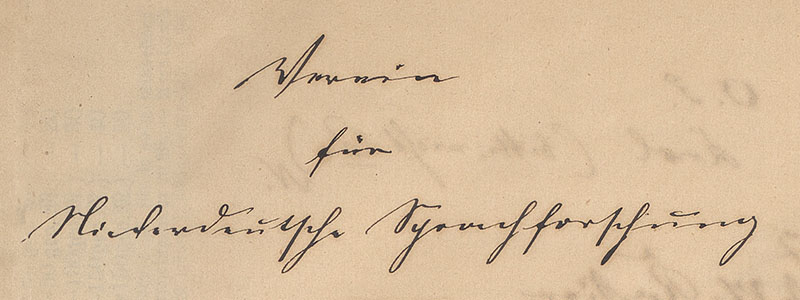 Verein
für
Niederdeutsche Sprachforschung